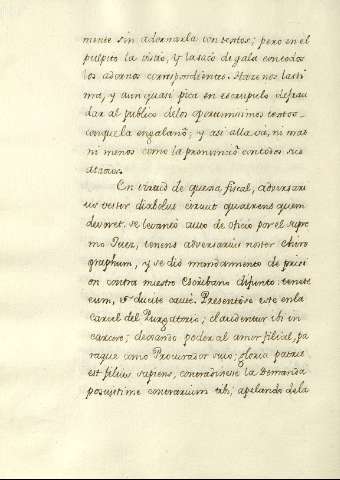 mente sin adornarla con textos; pero en el
pulpito la vistió, y la sacó de gala con todos
los adornos correspondientes. Hazenos lasti
ma, y aun quasi pica en escrupulo defrau
dar al publico de los oportunisimos textos
con que la engalanó; y asi allá va, ni mas
ni menos como la pronunció con todos sus
atavios.
En virtud de quexa fiscal, adversari
us vester diabolus circuit quaerens quem
devoret. se levantó auto de oficio por el supre
mo Juez, tenens adversarius noster chiro
graphum, y se dió mandamiento de prisi
on contra nuestro Escribano difunto. tenete
eum, et ducite caute. Presentóse este en la
carcel del Purgatorio; claudentur ibi in
carcere; dexando poder al amor filial, pa
ra que como Procurador suyo; gloria patris
est filius sapiens, contradixese la demanda
posuisti me contrarium tibi; apelando de la